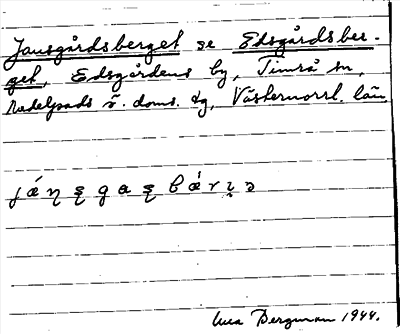 Jansgårdsberget se Edsgårdsber-
get, Edsgårdens by, Timrå sn,
Medelpads ö. doms. tg, Västernorrl. län
Bergman 1944.